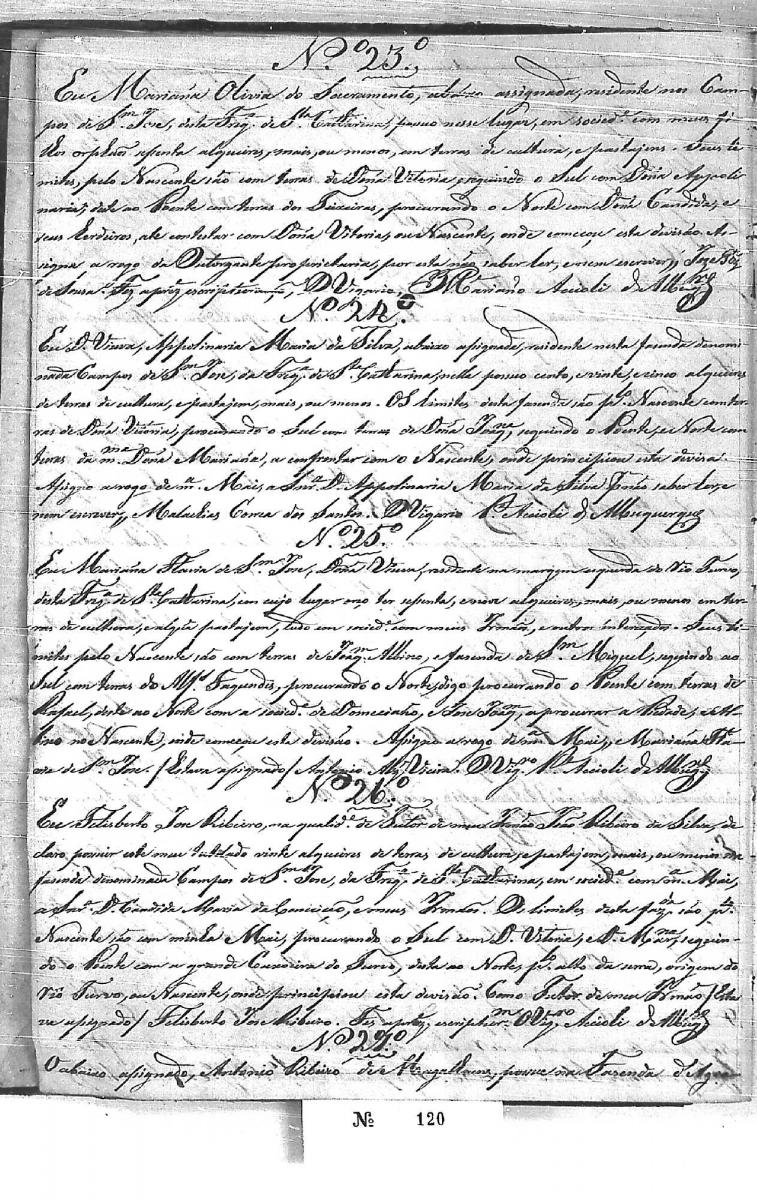 Nº 23º
Eu Marianna Olivia do Sacramento, abaixo assignada, residente nos Cam-
pos de S.m Jose, desta Freg.a de S.ta Catharina, possuo nesse lugar, em socied.e com meus fi-
lhos orphãos sessenta alqueires, mais, ou menos, em terras de cultura, e pastagens. Seus li-
mites, pelo Nascente são com terras de Dona Vitoria, seguindo o Sul com Dona Appoli-
naria, deste ao Poente com terras dos Teixeiras, procurando o Norte com Dona Candida, e
seus Erdeiros, até contestar com Dona Vitoria, ou Nascente, onde começou esta divisão. As-
signa a rogo da Outorgante proprietaria, por esta não saber ler, e nem escrever, Joze
de Sousa. Fez a prez.e escripturação, O Vigario, Mariano Accioli de Albuq.e
Nº 24.º
Eu D. Viuva, Appolinaria Maria da Silva, abaixo assignada, residente nesta fasenda denomi-
nada Campos de S.m Jose, da Freg.a de S.ta Catharina, nella possuo cento, e vinte, e cinco alqueires
de terras de cultura, e pastajem, mais, ou menos. Os limites desta fasenda são p.lo Nascente com ter-
ras de Dona Vitoria, procurando o Sul com terras de Dona, seguindo o Poente, e Norte com
terras da m.ma Dona Marianna, a confrontar com o Nascente, onde principiou esta divisa
Assigno a rogo de m.a Mai, a Snr.a D. Appolinaria Maria da Silva p.r não saber ler, e
nem escrever, Malachias Correa dos Santos. O Vigario M. Accioli d' Albuquerque
Nº 25.º
Eu Marianna Flavia de S.m Jose, Dona Viuva, residente na margem esquerda do Rio Turvo,
desta Freg.a de S.ta Catharina, em cujo lugar ter sessenta, e nove alqueires, mais, ou menos em ter-
ras de cultura, e pastajem, tudo em socied.e com meus Irmãos, e outros interessados. Seus li-
mites pelo Nascente são com terras de Joaq.m Albino, e fasenda de S.m Miguel, seguindo ao
Sul com terras do Alf.s Fagundes, procurando o Norte, digo procurando o Poente com terras de
Rafael, deste ao Norte com a socied.e de Domeciano, e Jose Joaq.m, a procurar a, e Al-
bino no Nascente, onde começou esta divisão. Assigno a rogo de m.a Mai, Marianna Fla-
via de S.m Jose. / Estava assignado / Antonio Alz Vieira. O Vig.ro M. Accioli de Albuq.e
Nº 26.º
Eu Felisberto Jose Ribeiro, na qualid.e de Tutor de meu Irmão João Ribeiro da Silva, de-
claro possuir este meu tutelado vinte alqueires de terras de cultura, e pastajem, mais, ou menos na
fasenda denominada Campos de S.m Jose, da Freg.a de S.ta Catharina, em socied.e com m.a Mai,
a Snr.a D. Candida Maria da Conceição, e meus Irmãos. Os limites desta faz.da são p.lo
Nascente são com minha Mai, procurando o Sul com D. Vitoria, e D. Mar.na, seguin-
do o Poente com a grande Caxoeira do Turvo, desta ao Norte, p.lo alto da serra, origem do
Rio Turvo, ou Nascente, onde principiou esta divisão. Como Tutor de meu Irmão / Esta-
va assignado / Felisberto Jose Ribeiro. Fez a prez.e escriptur.m O Vig.ro Accioli d' Albuq.e
Nº 27º
O abaixo assignado, Antonio Ribeiro de Magalhães, possue na Fazenda d'Agoa
Nº 120